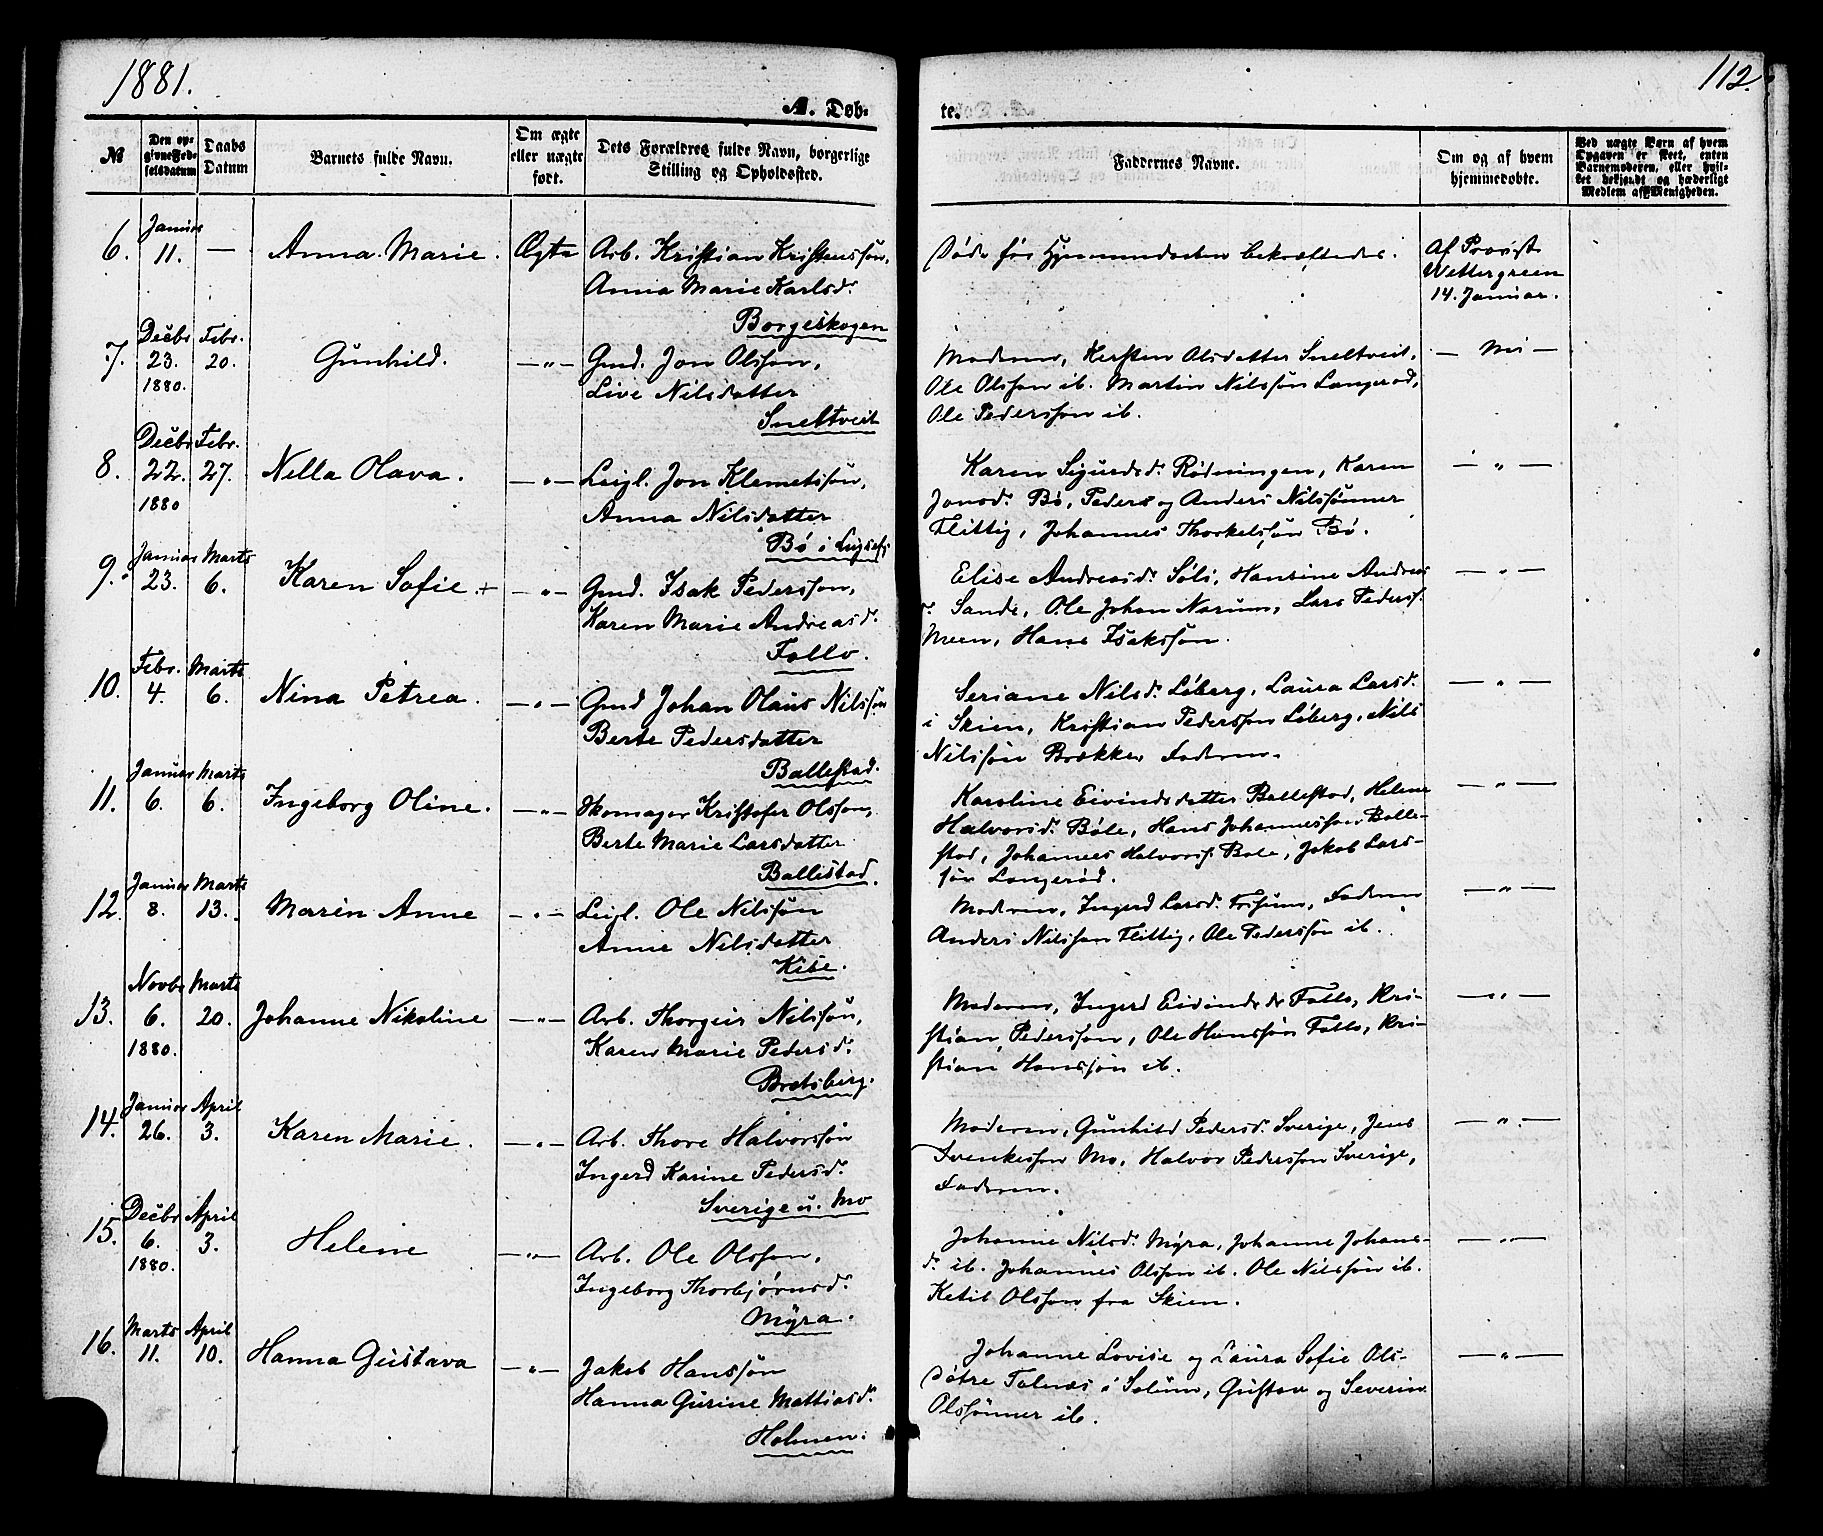 1881.
112.
A. Døb-
te.
№
Den op-
givne Fød-
selsdatum
Daabs
Datum
Barnets fulde Navn.
Om ægte
eller uægte
født.
Dets Forældres fulde Navn, borgerlige
Stilling og Opholdssted.
Faddernes Navne.
Om og af hvem
hjemmedøbte.
Ved uægte Barn af hvem
Opgaven er skeet, enten
Barnemoderen, eller hvil-
ket bekjendt og hæderligt
Medlem af Menigheden.
6.
Januar
11.
—
Anna Marie.
Ægte
Arb. Kristian Kristenssøn,
Anna Marie Karlsd.
Borgeskogen
Døde før Hjemmedaaben bekræftedes.
Af Provst
Wettergreen
14. Januar.
7.
Decbr
23.
1880.
Febr.
20.
Gunhild.
—"—
Gmd. Jon Olsson,
Live Nilsdatter
Sneltveit
Moderen, Kersten Olsdatter Sneltveit,
Ole Olsson ib. Martin Nilssøn Langerød,
Ole Pedersson ib.
— Nei —
8.
Decbr
22.
1880
Febr.
27.
Nella Olava.
—"—
Leigl. Jon Klemetssøn,
Anna Nilsdatter
Bø i
Karen Sigurdsd. Rødningen, Karen
Jonsd. Bø, Peder og Anders Nilssønner
Flittig, Johannes Thorkelssøn Bø.
— " —
9.
Januar
23.
Marts
6.
Karen Sofie. +
—"—
Gmd. Isak Pedersson,
Karen Marie Andreasd.
Follo.
Elise Andreasd. Søli, Hansine Andreas
d. Sande, Ole Johan Narum, Lars Peders.
Meen, Hans Isakssøn.
— " —
10.
Febr.
4.
Marts
6.
Nina Petrea.
—"—
Gmd Johan Olaus Nilssøn
Berte Pedersdatter
Ballestad.
Seriane Nilsd. Løberg, Laura Larsd.
i Skien, Kristian Pedersson Løberg, Nils
Nilssøn Brække, Faderen.
— " —
11.
Januar
6.
Marts
6.
Ingeborg Oline.
—"—
Skomager Kristofer Olsson,
Berte Marie Larsdatter
Ballestad.
Karoline Eivindsdatter Ballestad, Helene
Halvorsd. Bøle, Hans Johannesson Balle-
stad, Johannes Halvorss. Bøle, Jakob Lars-
søn Langerød.
— " —
12.
Januar
8.
Marts
13.
Maren Anne
—"—
Leigl. Ole Nilssøn
Anne Nilsdatter
Kise.
Moderen, Ingerd Larsd. Frisum, Faderen
Anders Nilsson Flittig, Ole Pederssøn ib.
— " —
13.
Novbr
6.
1880.
Marts
20.
Johanne Nikoline
—"—
Arb. Thorgeir Nilssøn,
Karen Marie Pedersd.
Bratsberg.
Moderen, Ingerd Eivindsd. Follo, Kri-
stian Pedersson, Ole Hanssøn Follo, Kri-
stian Hanssøn ib.
— " —
14.
Januar
26.
April
3.
Karen Marie.
—"—
Arb. Thore Halvorssøn
Ingerd Karine Pedersd.
Sverige u. Mo
Moderen, Gunhild Pedersd. Sverige, Jens
Svenkesson Mo, Halvor Pedersson Sverige,
Faderen.
— " —
15.
Decbr
6.
1880.
April
3.
Helene
—"—
Arb. Ole Olsson,
Ingeborg Thorbjørnsd.
Myra.
Johanne Nilsd. Myra, Johanne Johans-
d. ib. Johannes Olsson ib. Ole Nilssøn ib.
Ketil Olsson fra Skien.
— " —
16.
Marts
11.
April
10.
Hanna Gustava
—"—
Jakob Hanssøn
Hanna Gurine Mattiasd.
Holmen.
Johanne Lovise og Laura Sofie Ols-
døtre Tolnæs i Solum, Gustav og Severin
Olssønner ib.
— " —